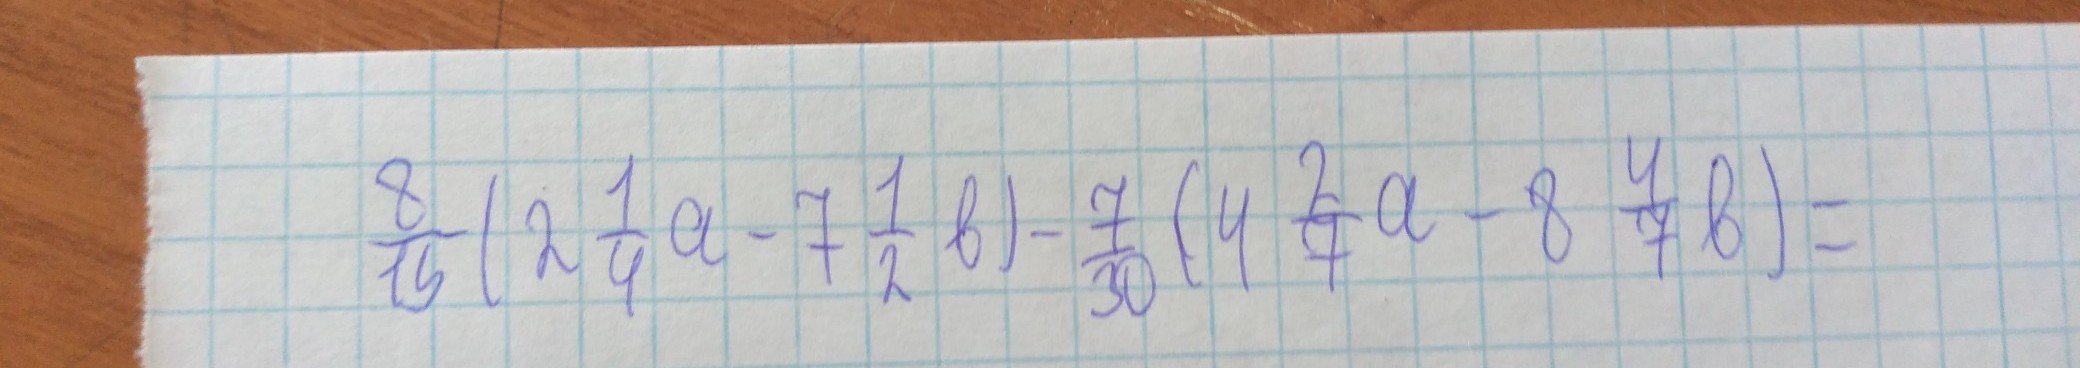 8/15 (2 1/4 a - 7 1/2 b) - 7/30 (4 2/7 a - 8 4/7 b) =